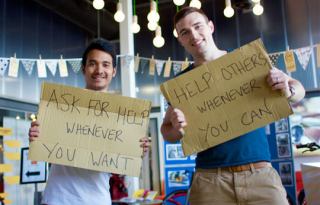 ASK FOR HELP
WHENEVER
YOU WANT
HELP OTHERS
WHENEVER
YOU CAN